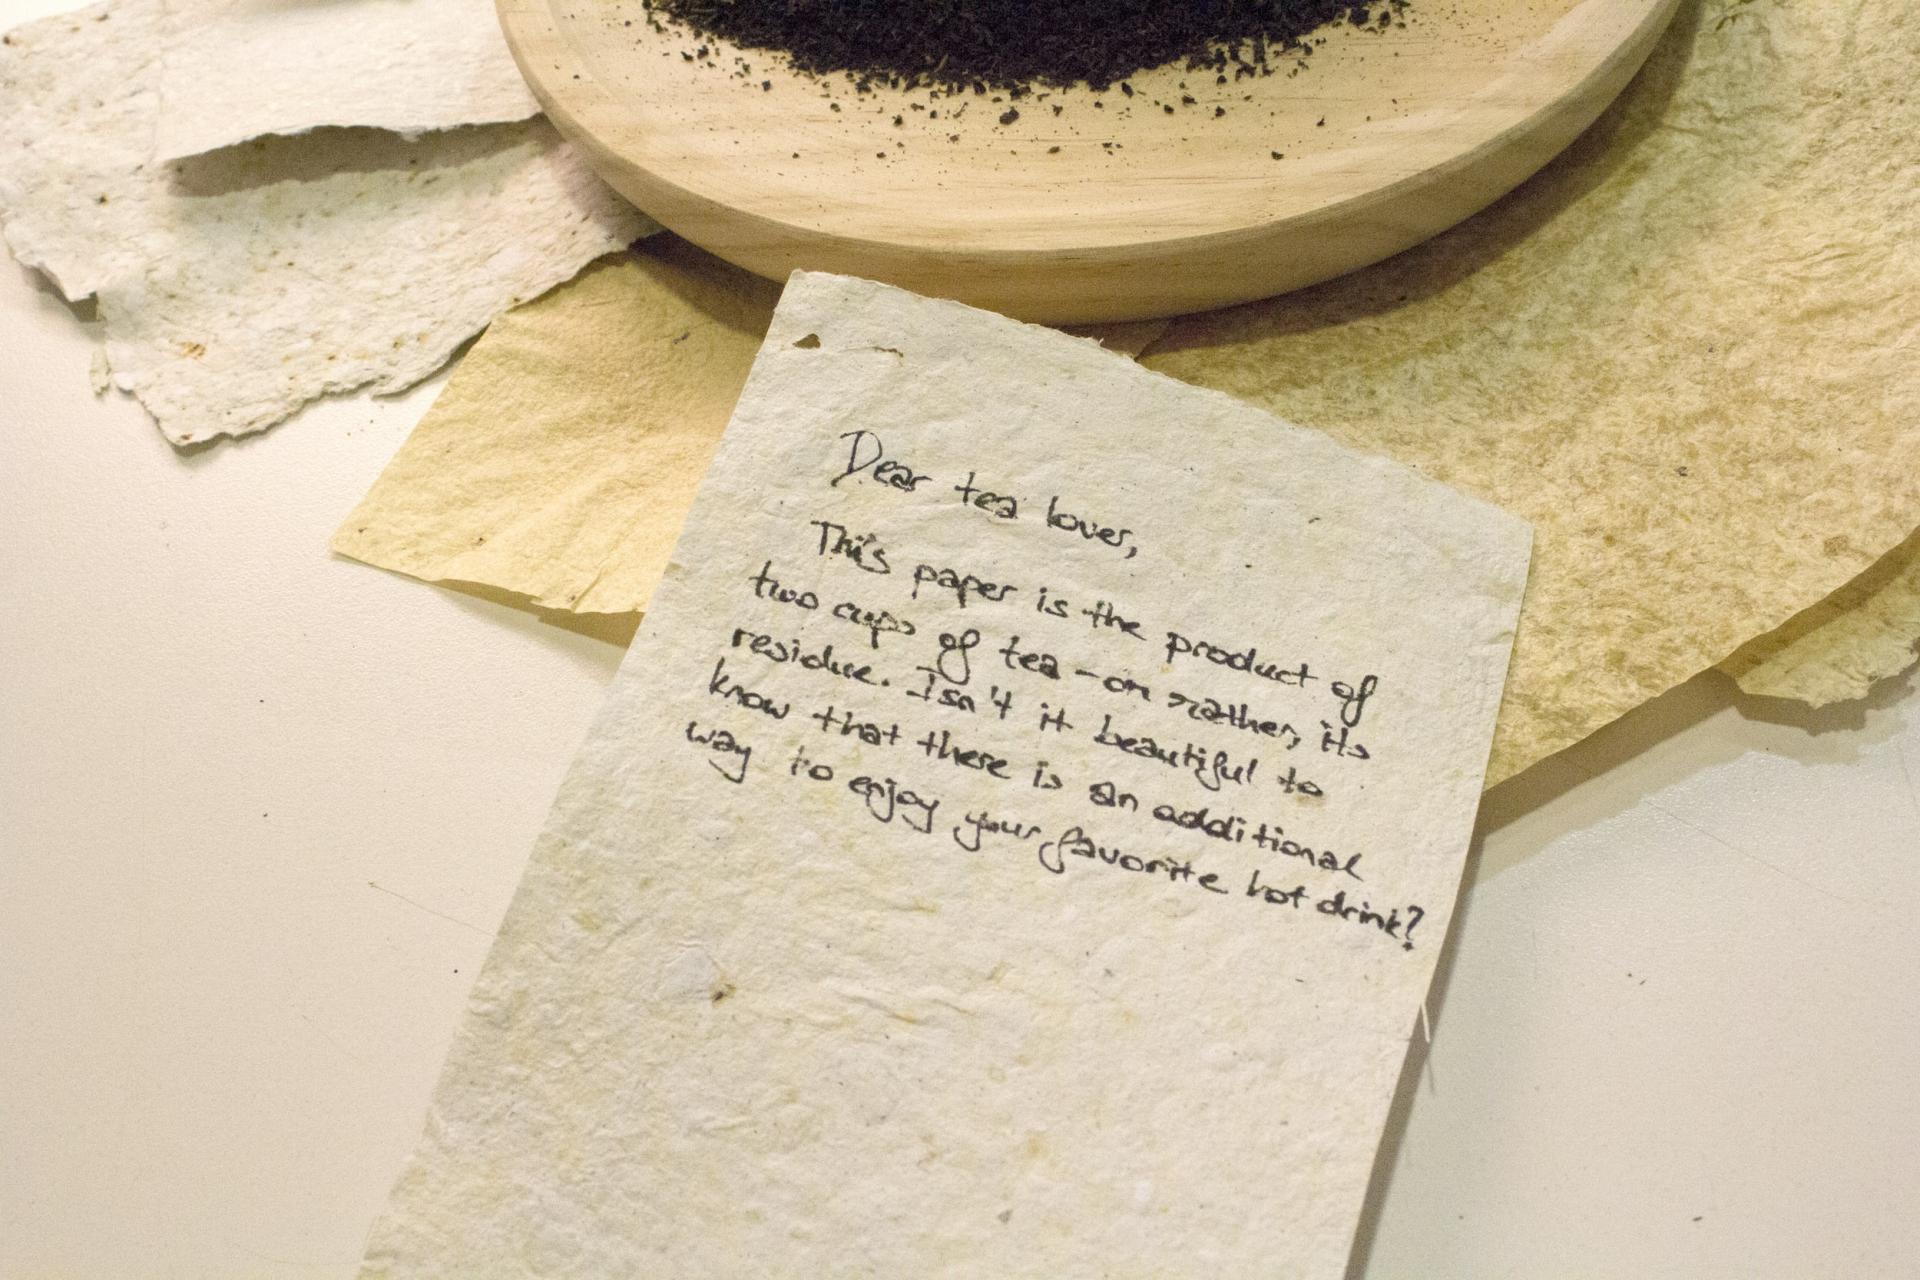 Dear tea lover,
This paper is the product of
two cups of tea - or rather, its
residue. Isn't it beautiful to
know that there is an additional
way to enjoy your favorite hot drink?